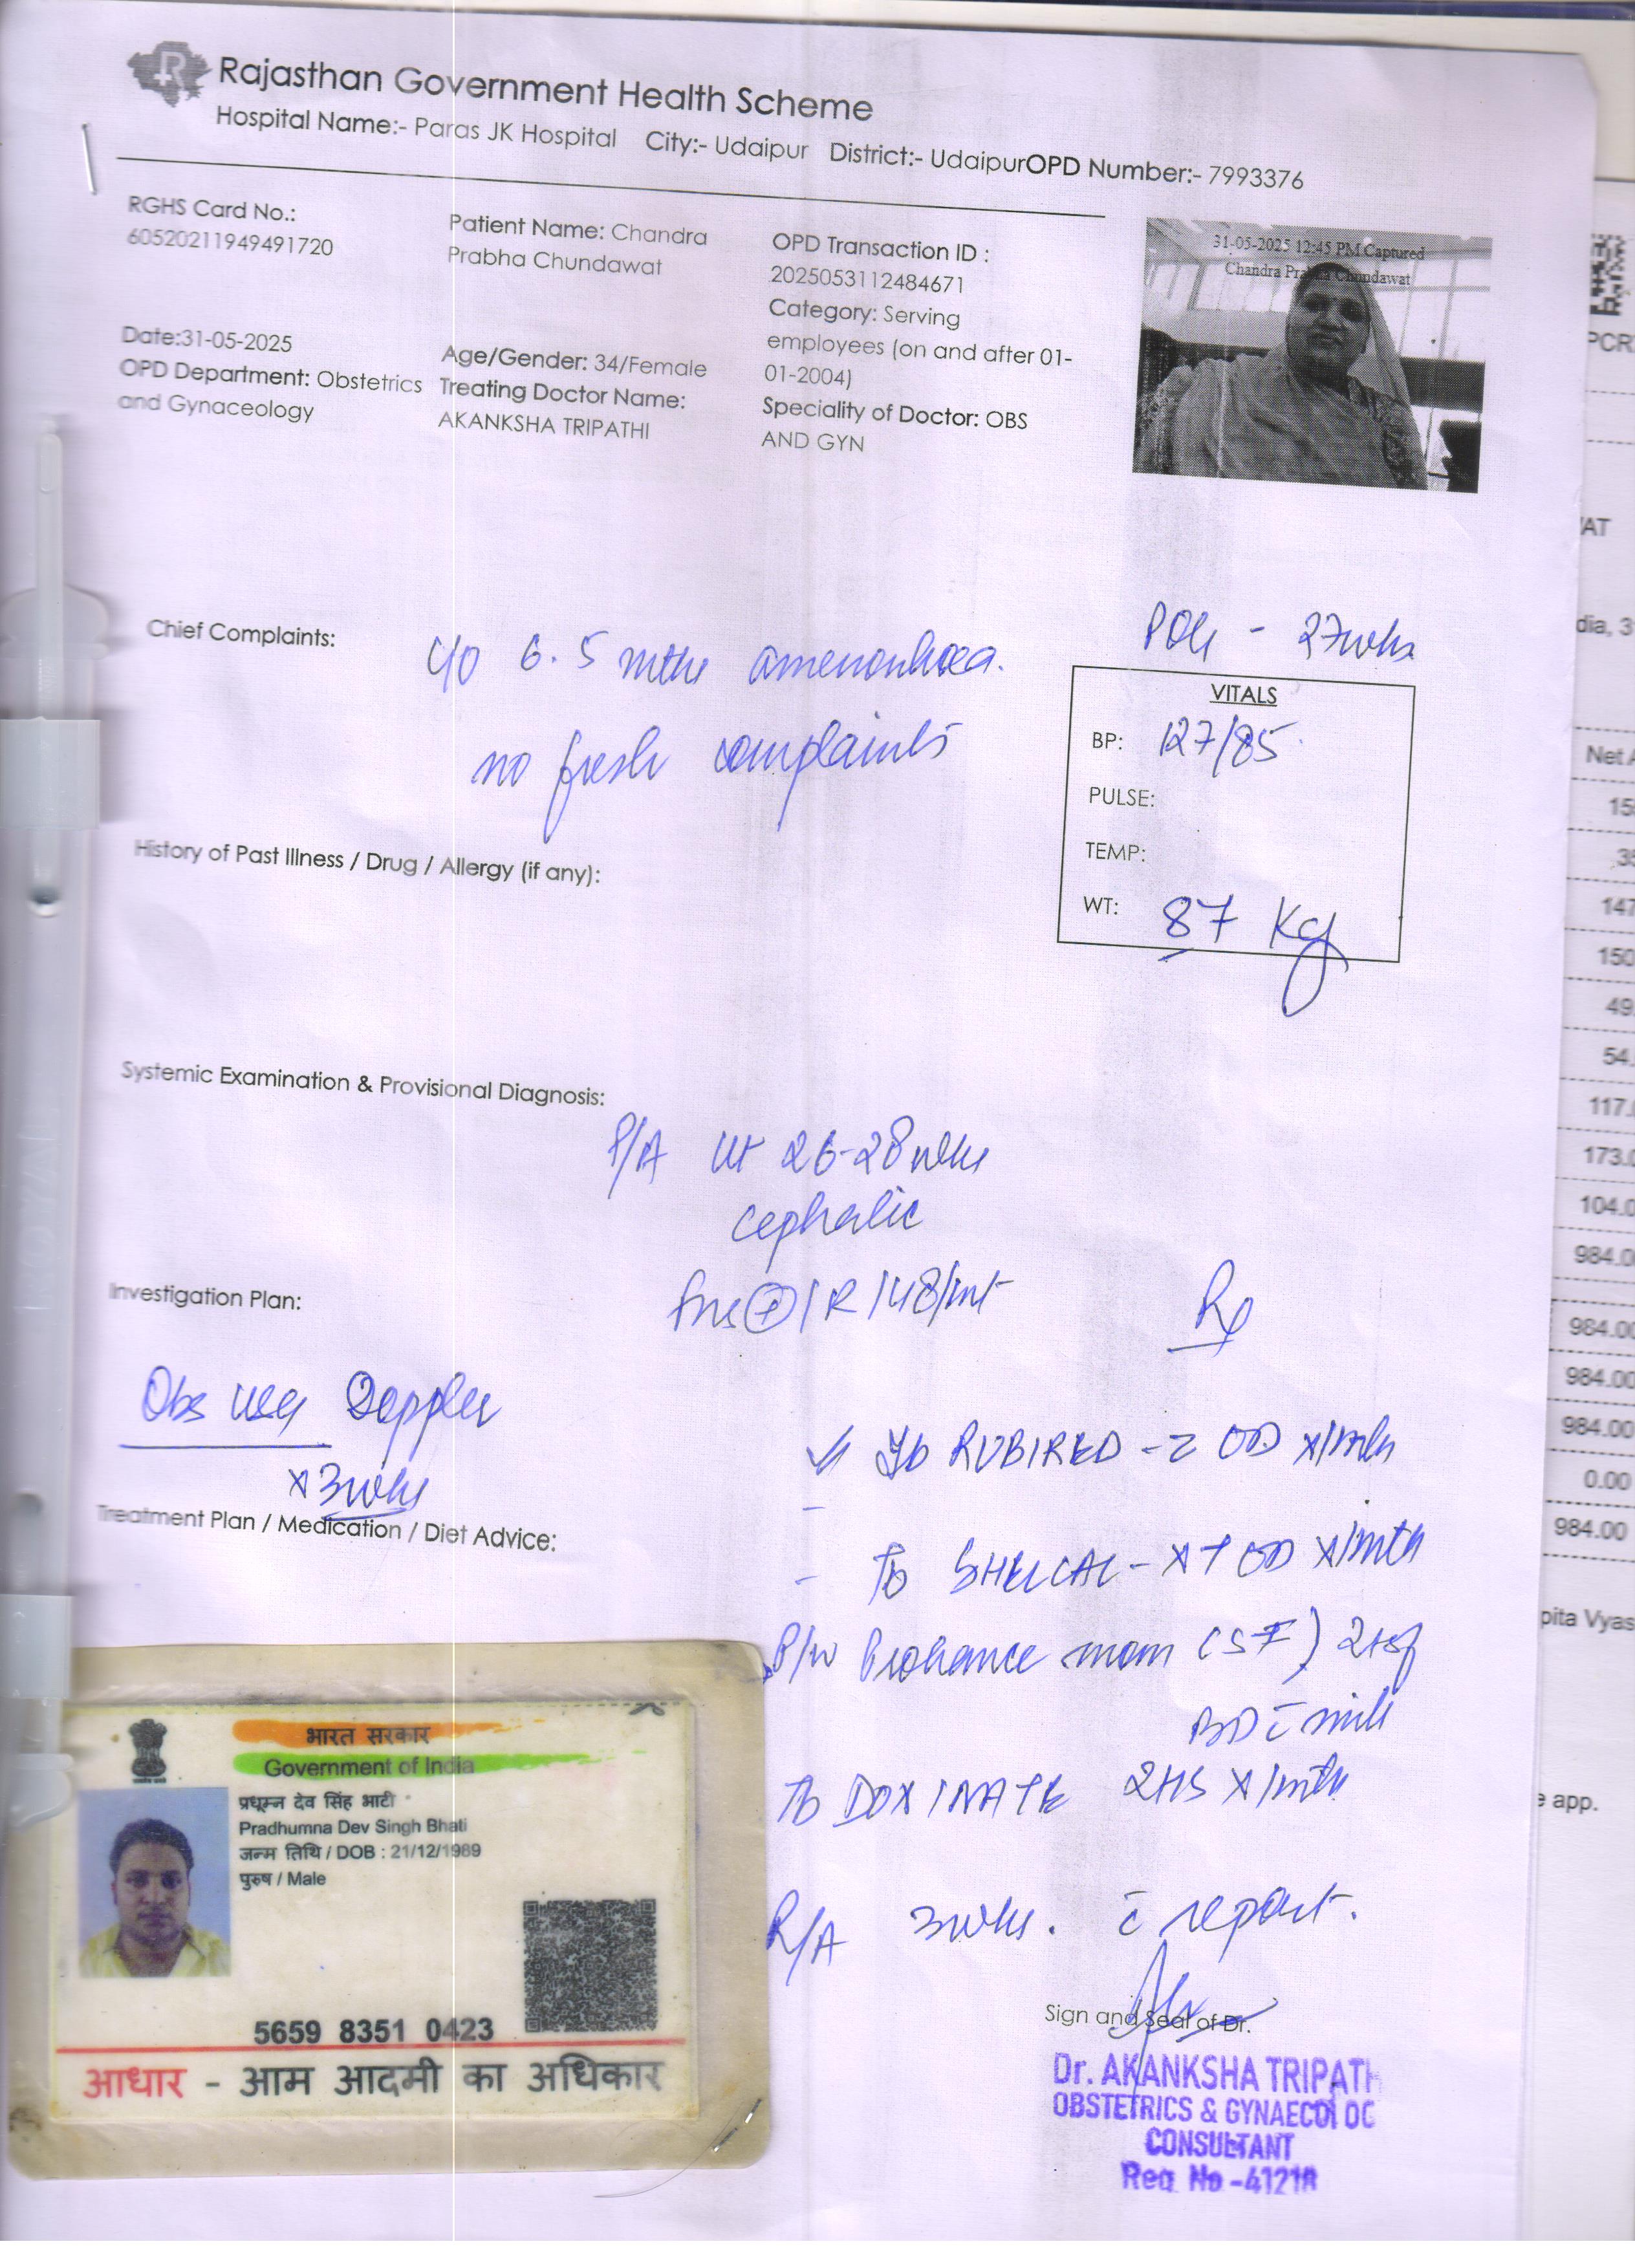 Rajasthan Government Health Scheme
Hospital Name:- Paras JK Hospital City:- Udaipur District:- UdaipurOPD Number:- 7993376
RGHS Card No.:
60520211949491720
Patient Name: Chandra
Prabha Chundawat
OPD Transaction ID :
2025053112484671
Category: Serving
employees (on and after 01-
01-2004)
31-05-2025 12:45 PM Captured
Chandra Prabha Chundawat
Date:31-05-2025
OPD Department: Obstetrics
and Gynaceology
Age/Gender: 34/Female
Treating Doctor Name:
AKANKSHA TRIPATHI
Speciality of Doctor: OBS
AND GYN
Chief Complaints:
c/o 6.5 mths amenorrhoea.
no fresh complaints
POG - 27wks
VITALS
BP: 127/85
PULSE:
TEMP:
WT: 87 Kg
History of Past Illness / Drug / Allergy (if any):
Systemic Examination & Provisional Diagnosis:
P/A Ut 26-28wks
cephalic
fhs⊕/R/148/mt
Investigation Plan:
Obs USG Doppler
x 3wks
Treatment Plan / Medication / Diet Advice:
Rx
Tb RUBIRED-Z OD x/mth
- Tb SHELCAL-XT OD x/mth
P/w Prohance mom (SF) 2tsf
BD c̄ milk
Tb DOXINATE 2HS x/mth
R/A 3wks. c̄ report.
Sign and Seal of Dr.
Dr. AKANKSHA TRIPATH
OBSTETRICS & GYNAECOLOG
CONSULTANT
Reg. No -41218
भारत सरकार
Government of India
प्रधूम्न देव सिंह भाटी
Pradhumna Dev Singh Bhati
जन्म तिथि / DOB : 21/12/1989
पुरुष / Male
5659 8351 0423
आधार - आम आदमी का अधिकार
PCR
AT
dia, 3
Net A
15
35
147
150
49.
54.
117.
173.0
104.0
984.0
984.00
984.00
984.00
0.00
984.00
pita Vyas
e app.